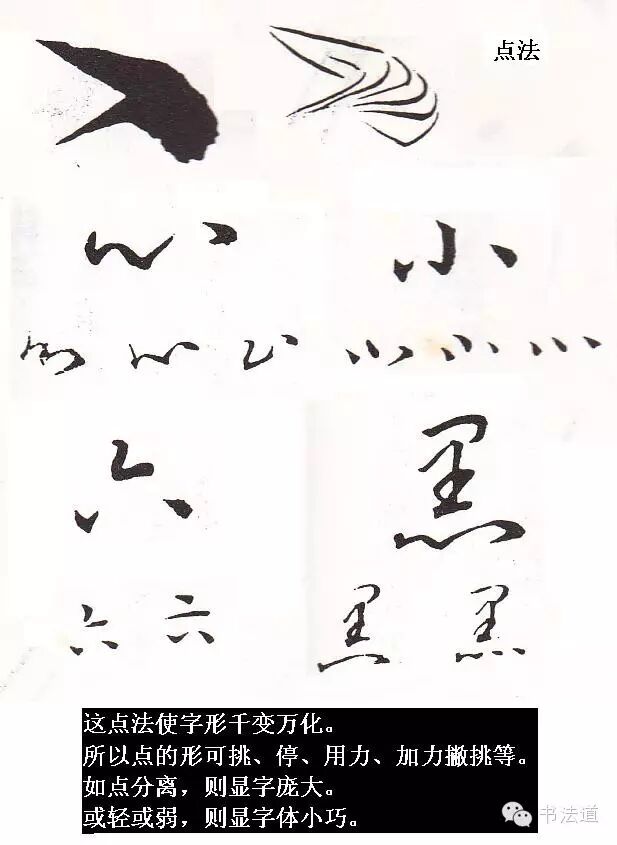 点法
心 小
心 心 心 小 小 小
六 黑
六 六 黑 黑
这点法使字形千变万化。
所以点的形可挑、停、用力、加力撇挑等。
如点分离，则显字庞大。
或轻或弱，则显字体小巧。
书法道